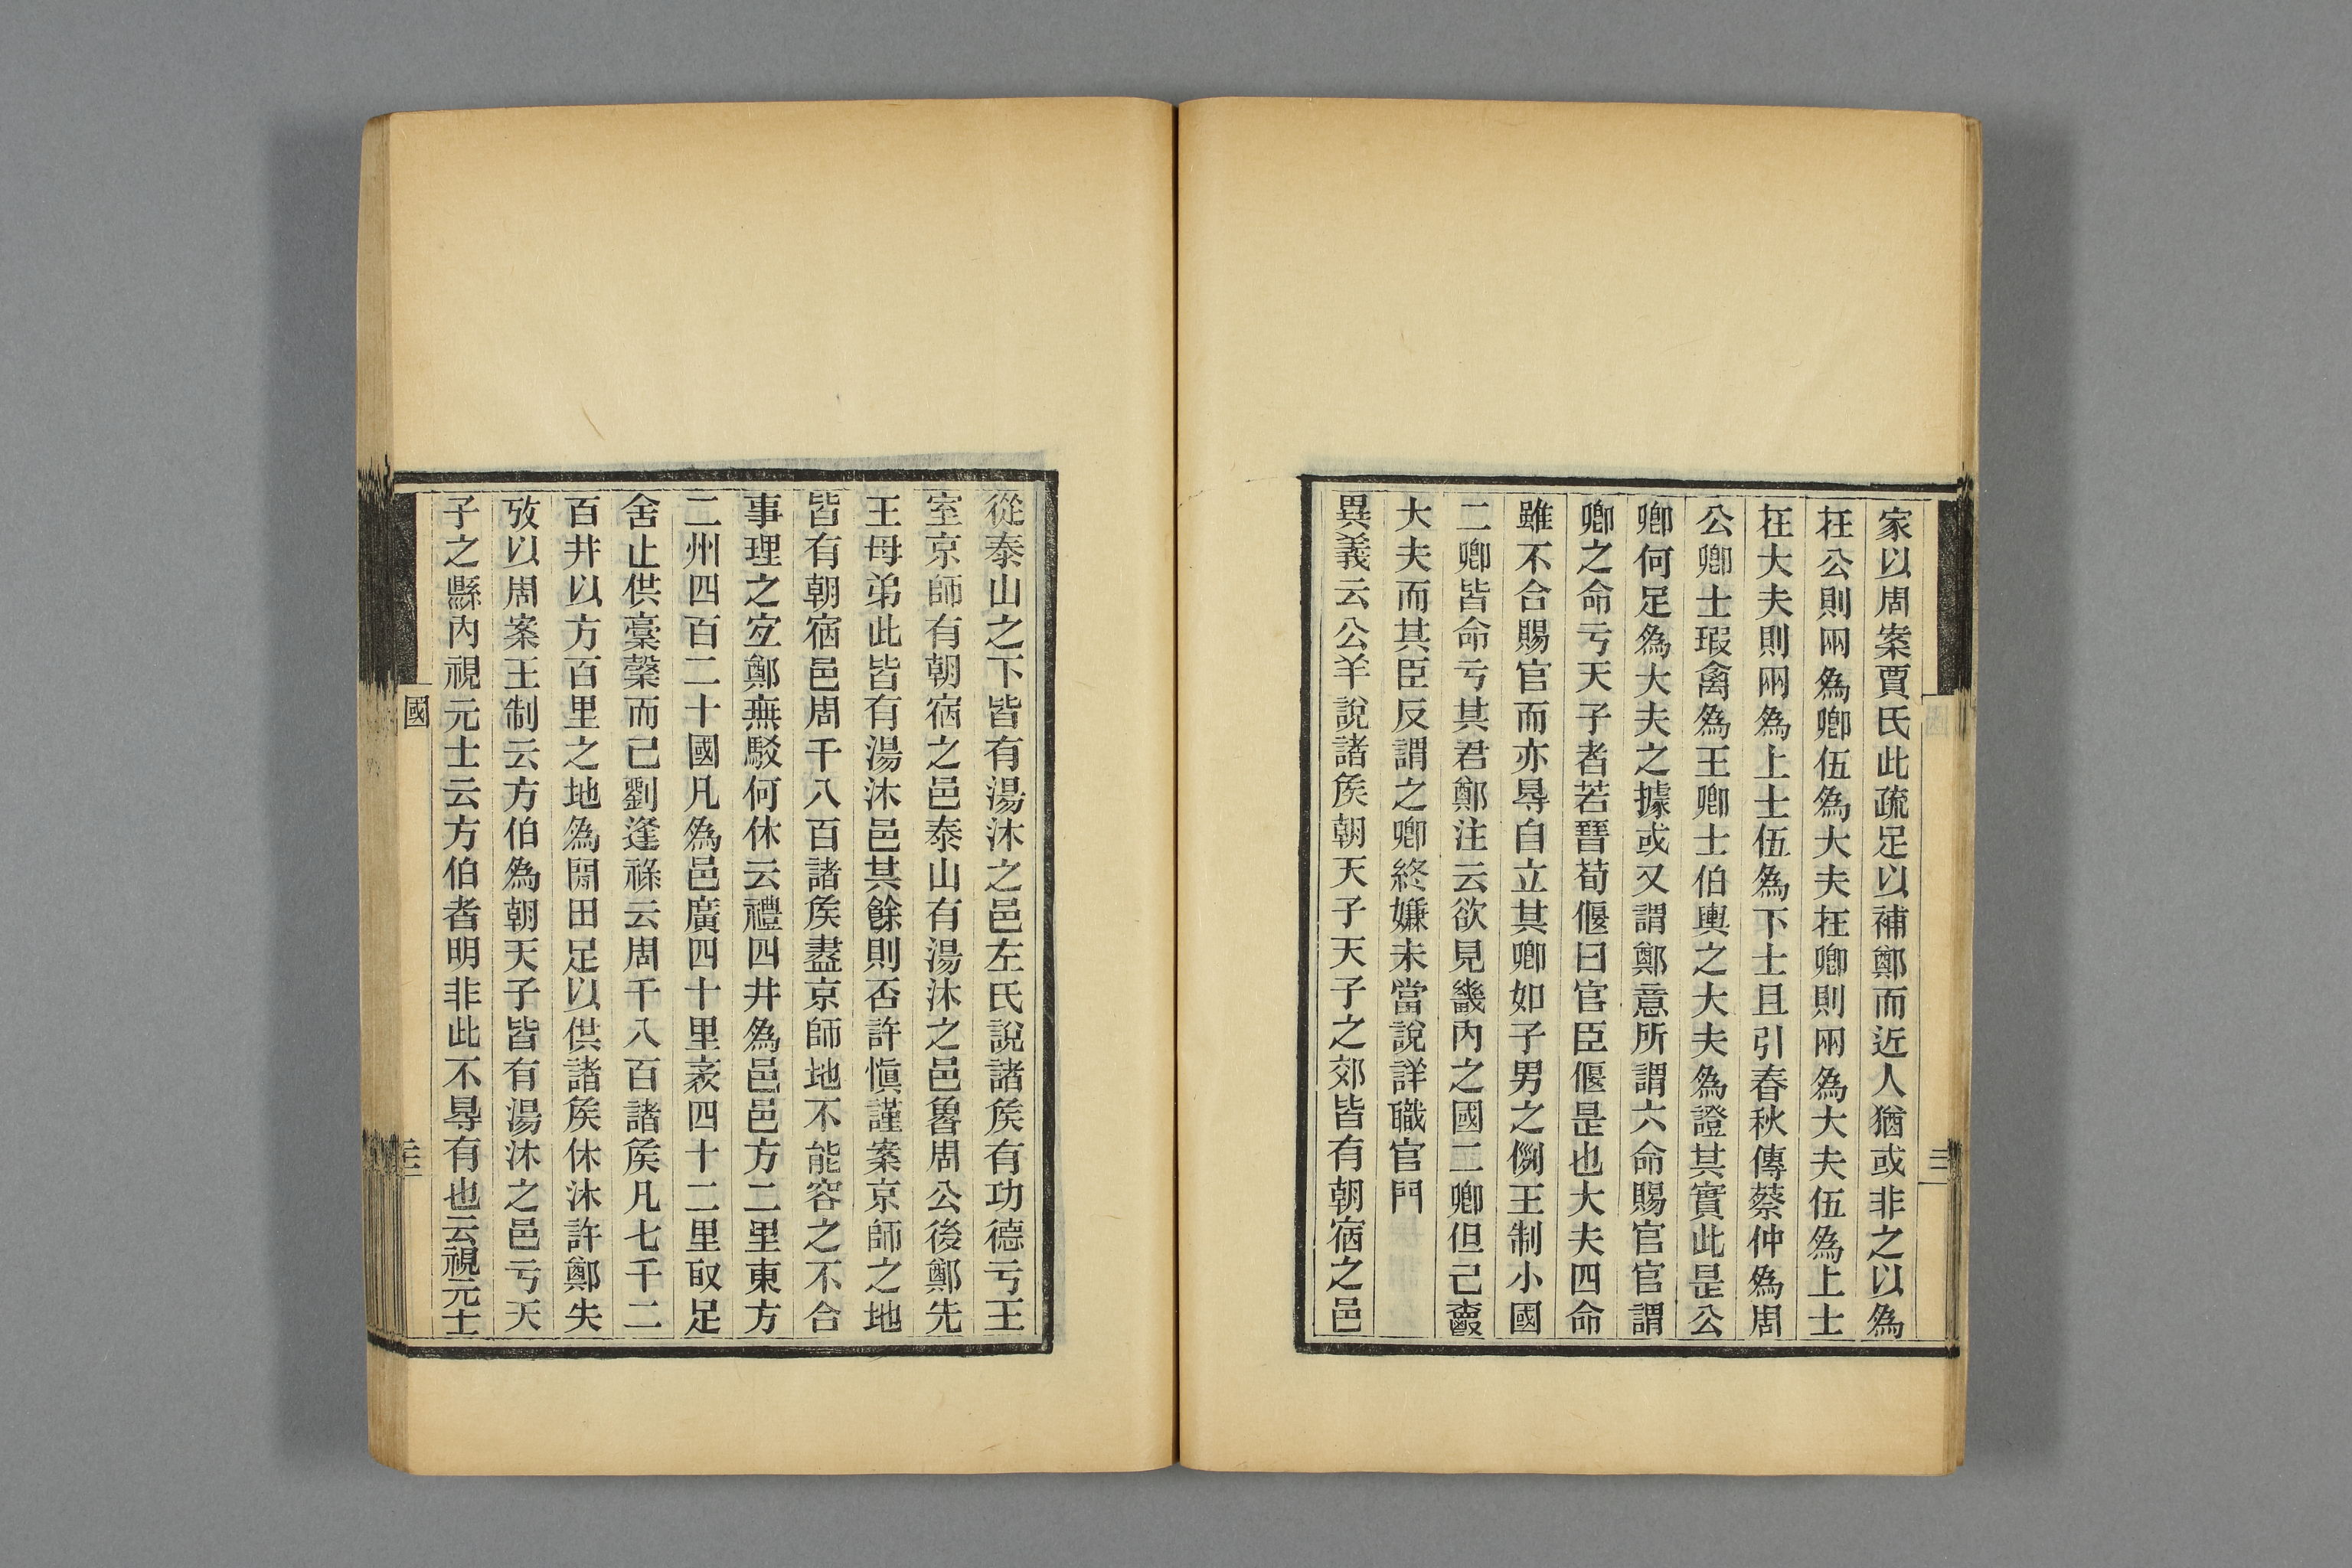 家以周案賈氏此疏足以補鄭而近人猶或非之以爲
在公則兩爲卿伍爲大夫在卿則兩爲大夫伍爲上士
在大夫則兩爲上士伍爲下士且引春秋傳蔡仲爲周
公卿士瑕禽爲王卿士伯輿之大夫爲證其實此是公
卿何足爲大夫之據或又謂鄭意所謂六命賜官官謂
卿之命亏天子者若晉荀偃曰官臣偃是也大夫四命
雖不合賜官而亦㝵自立其卿如子男之例王制小國
二卿皆命亏其君鄭注云欲見畿內之國二卿但己
大夫而其臣反謂之卿終嫌未當說詳職官門
異義云公羊說諸矦朝天子天子之郊皆有朝宿之邑
從泰山之下皆有湯沐之邑左氏說諸矦有功德亏王
室京師有朝宿之邑泰山有湯沐之邑魯周公後鄭先
王母弟此皆有湯沐邑其餘則否許愼謹案京師之地
皆有朝宿邑周千八百諸矦盡京師地不能容之不合
事理之宐鄭無駁何休云禮四井爲邑邑方二里東方
二州四百二十國凡爲邑廣四十里袤四十二里取足
舍止供稾穀而己劉逢祿云周千八百諸矦凡七千二
百井以方百里之地爲閒田足以供諸矦休沐許鄭失
攷以周案王制云方伯爲朝天子皆有湯沐之邑亏天
子之縣內視元士云方伯者明非此不㝵有也云視元士
國